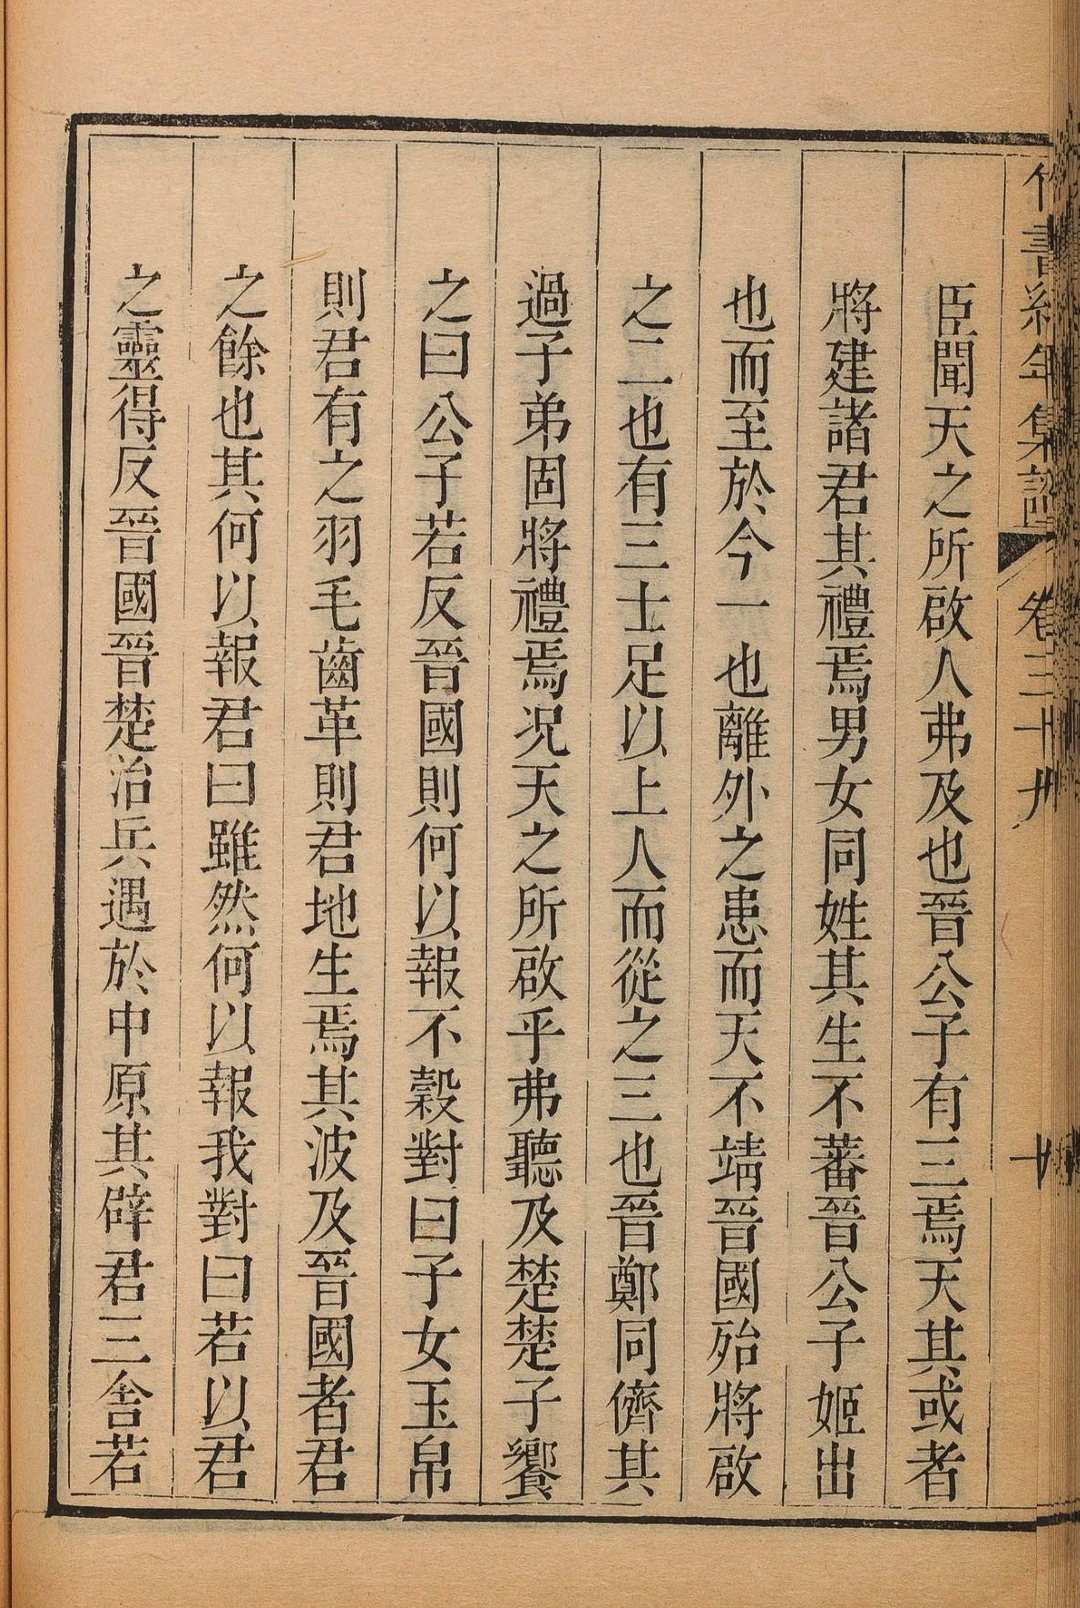 竹書紀年集證 卷三十九 十
臣聞天之所啟人弗及也晉公子有三焉天其或者
將建諸君其禮焉男女同姓其生不蕃晉公子姬出
也而至於今一也離外之患而天不靖晉國殆將啟
之二也有三士足以上人而從之三也晉鄭同儕其
過子弟固將禮焉況天之所啟乎弗聽及楚楚子饗
之曰公子若反晉國則何以報不穀對曰子女玉帛
則君有之羽毛齒革則君地生焉其波及晉國者君
之餘也其何以報君曰雖然何以報我對曰若以君
之靈得反晉國晉楚治兵遇於中原其辟君三舍若